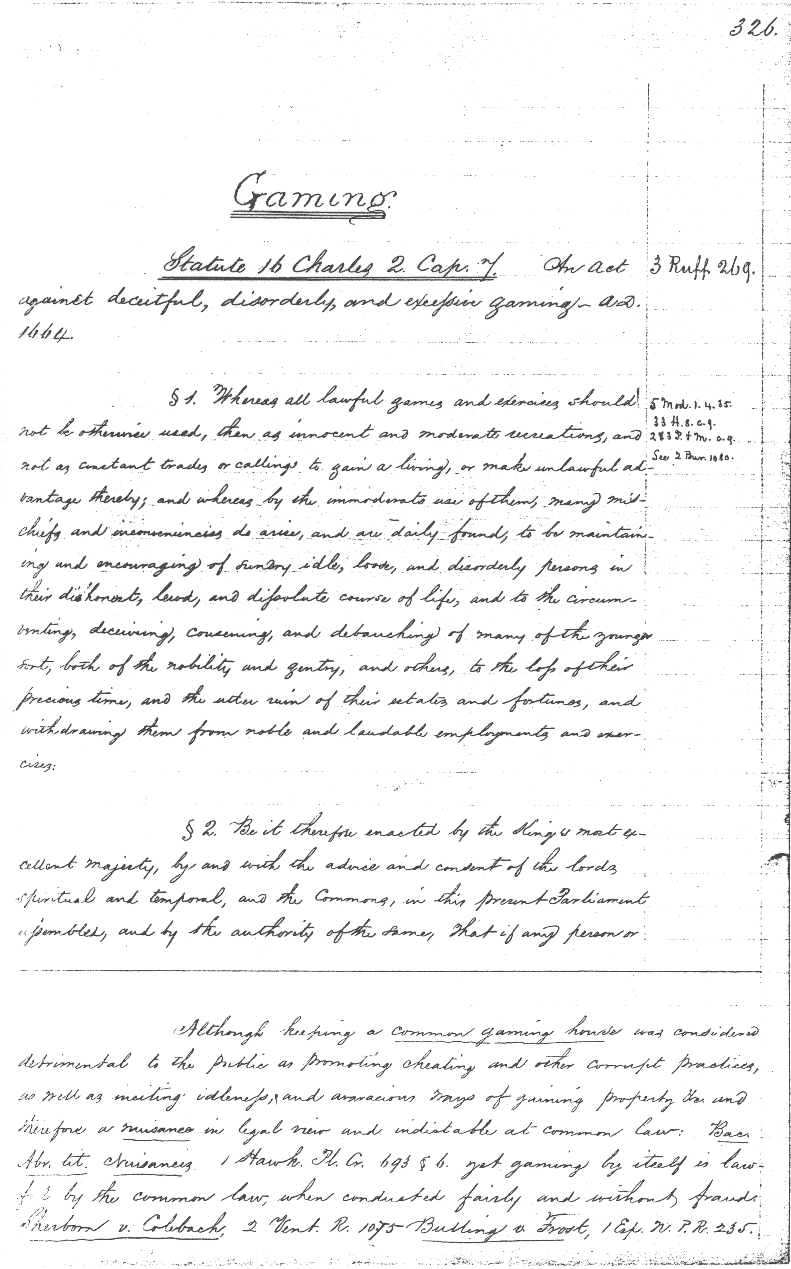 326.
Gaming.
Statute 16 Charles 2. Cap. 7. An Act
3 Ruff. 269.
against deceitful, disorderly, and excessive gaming – A.D.
1664.
§ 1. Whereas all lawful games and exercises should
not be otherwise used, than as innocent and moderate recreations, and
not as constant trades or callings to gain a living, or make unlawful ad-
vantage thereby; and whereas by the immoderate use of them, many mis-
chiefs and inconveniencies do arise, and are daily found, to be maintain-
ing and encouraging of sundry idle, loose, and disorderly persons in
their dishonest, lewd, and dissolute course of life, and to the circum-
venting, deceiving, cousening, and debauching of many of the younger
sort, both of the nobility and gentry, and others, to the loss of their
precious time, and the utter ruin of their estates and fortunes, and
withdrawing them from noble and laudable employments and exer-
cises:
5 Mod. 1. 4. 35.
33 H. 8. c. 9.
2 & 3 P. & M. c. 9.
See 2 Burr. 1080.
§ 2. Be it therefore enacted by the King's most ex-
cellent majesty, by and with the advice and consent of the lords
spiritual and temporal, and the Commons, in this present Parliament
assembled, and by the authority of the same, That if any person or
Although keeping a common gaming house was considered
detrimental to the public as promoting cheating and other corrupt practices,
as well as inciting idleness, and avaracious ways of gaining property &c. and
therefore a nuisance in legal view and indictable at common law: Bac.
Abr. tit. Nuisances 1 Hawk. Pl. Cr. 693 § 6. yet gaming by itself is law-
by the common law, when conducted fairly and without fraud.
Sherborn v. Colebach, 2 Vent. R. 175 Bulling v Frost, 1 Esp. N. P. R. 235.